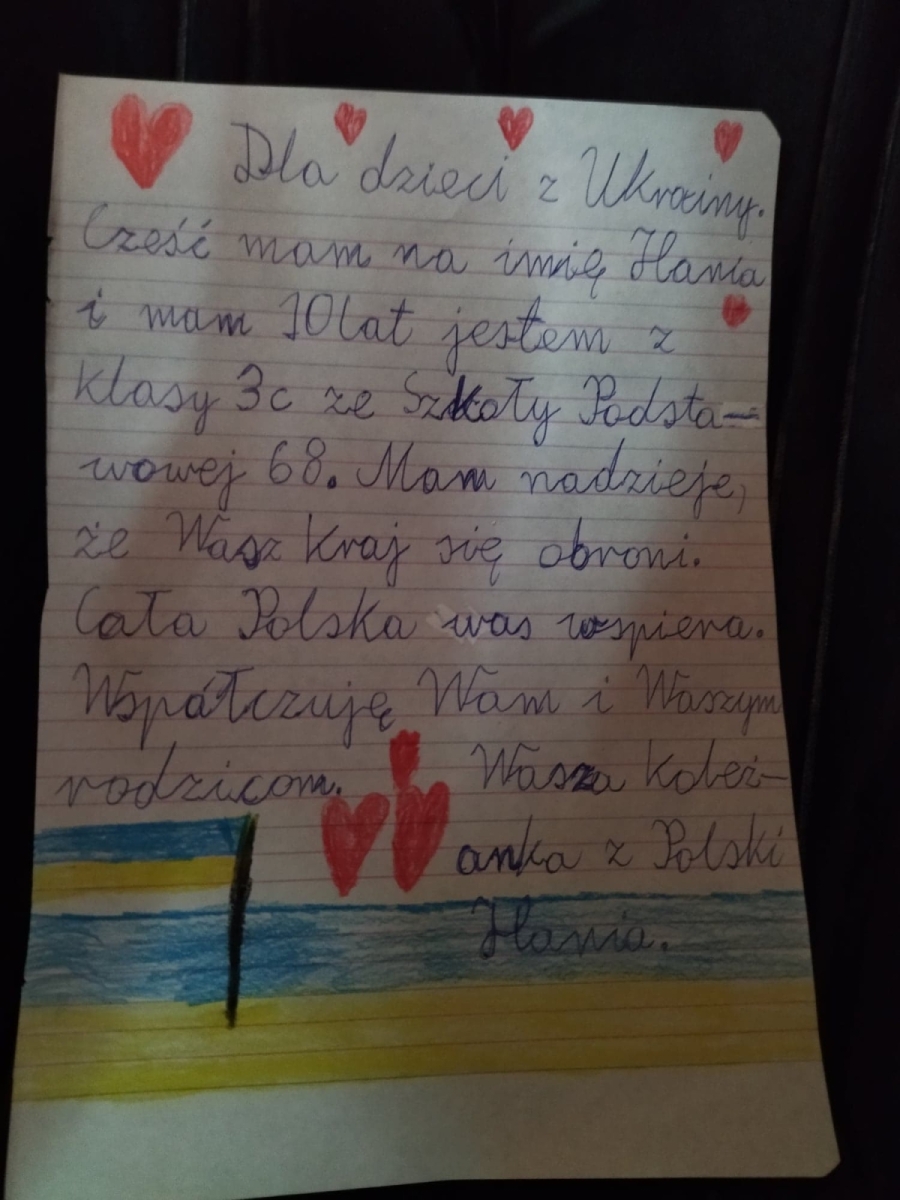 Dla dzieci z Ukrainy.
Cześć mam na imię Hania
i mam 10 lat jestem z
klasy 3c ze Szkoły Podsta-
wowej 68. Mam nadzieje,
że Wasz kraj się obroni.
Cała Polska was wspiera.
Współczuję Wam i Waszym
rodzicom. Wasza koleż-
anka z Polski
Hania.